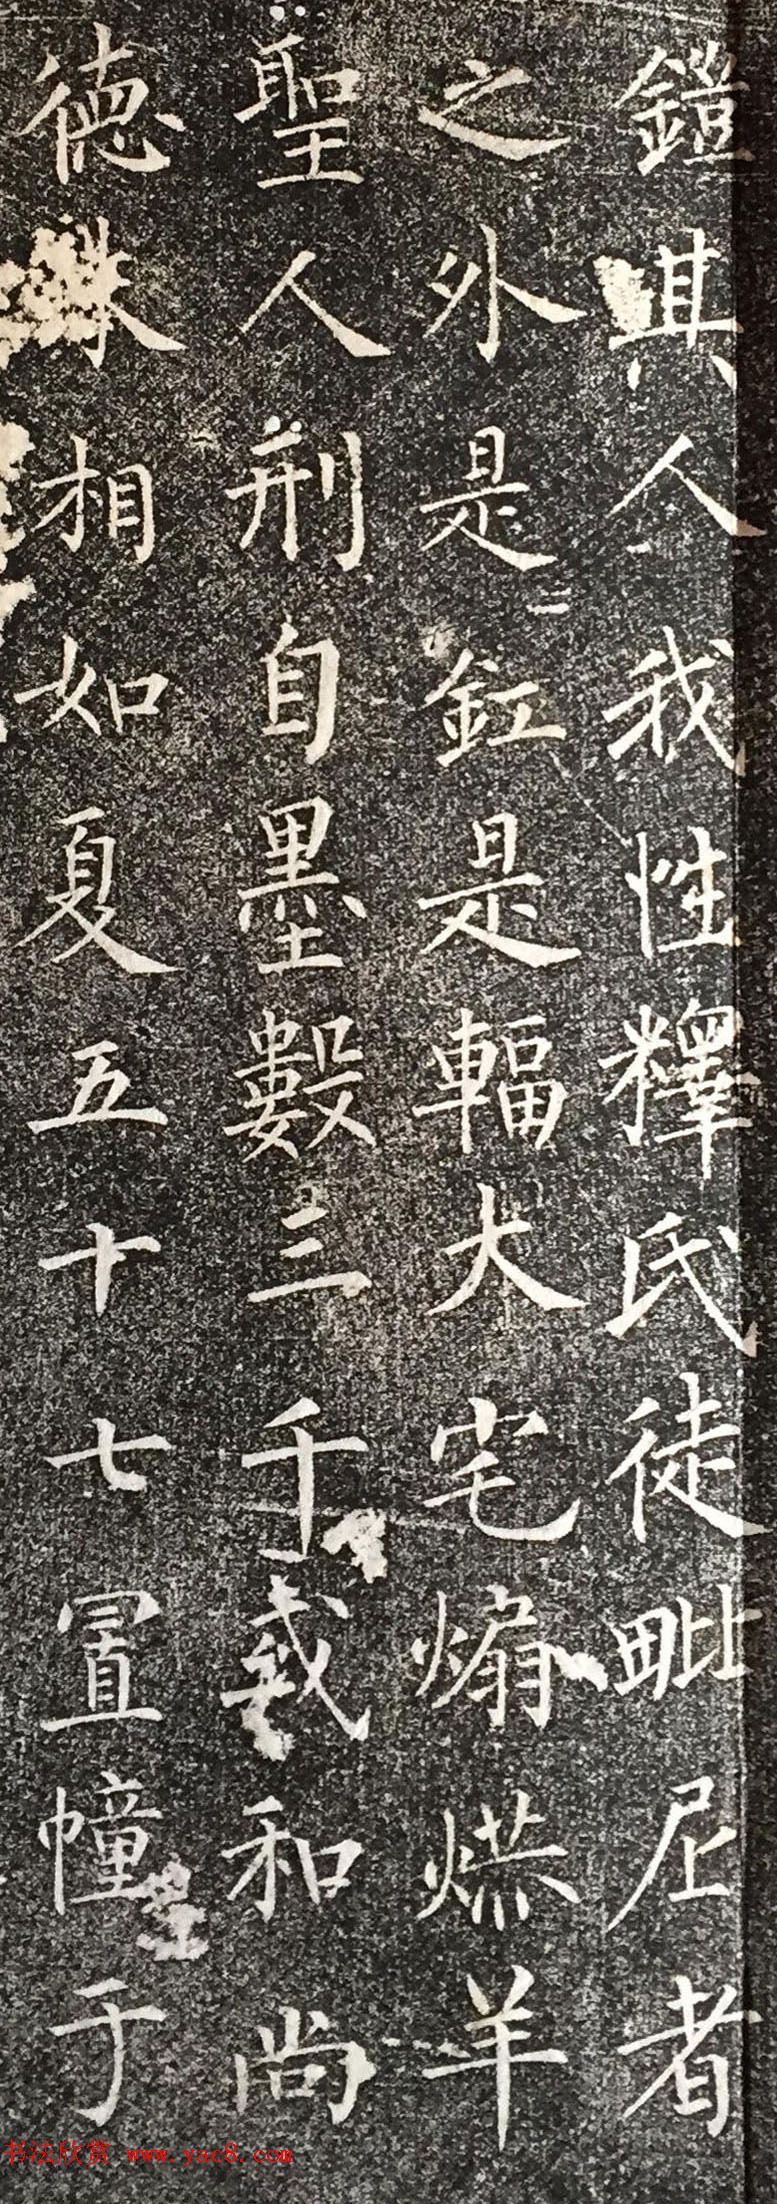 鎧其人我性釋氏徒毗尼者
之外是釭是輻大宅煽爀羊
聖人刑自墨數三千載和尚
德殊相如夏五十七置幢于
书法欣赏 www.yac8.com